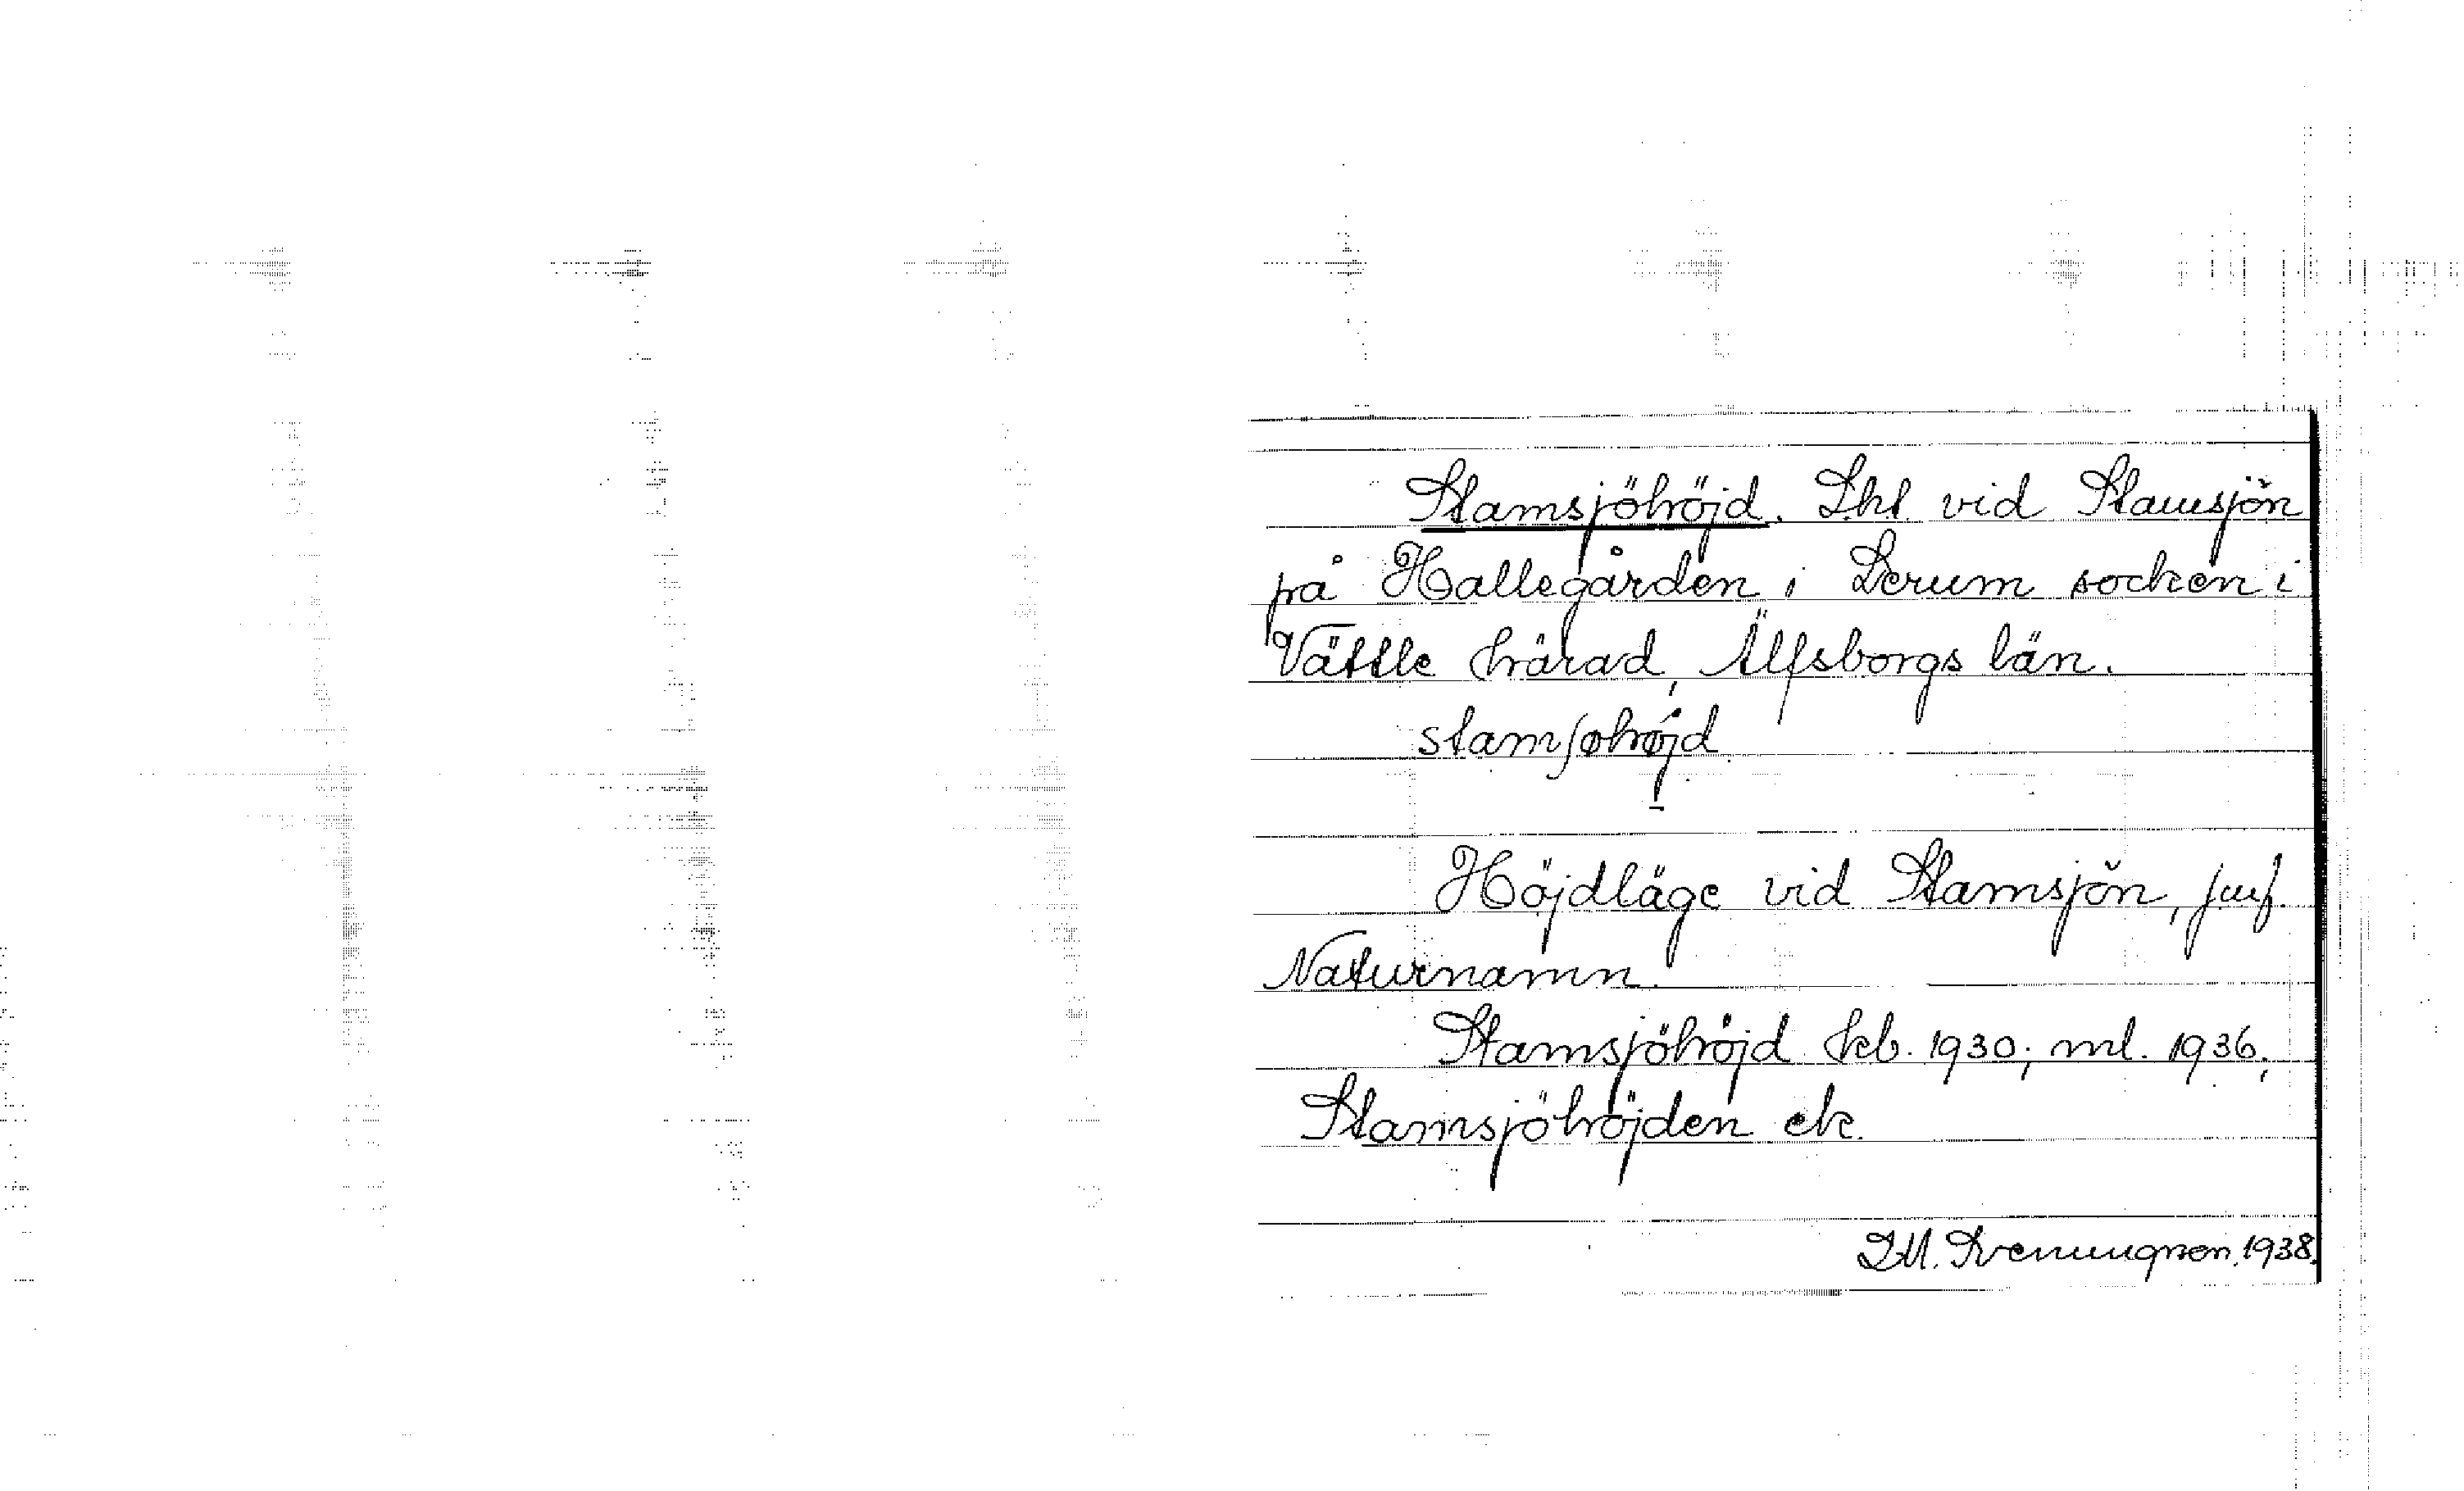 Stamsjöhöjd. Lht. vid Stamsjön
på Hallegården i Lerum socken i
Vättle härad, Älfsborgs län.
Höjdläge vid Stamsjön, jmf.
Naturnamn.
Stamsjöhöjd hb. 1930; ml. 1936;
Stamsjöhöjden ek.
1938.